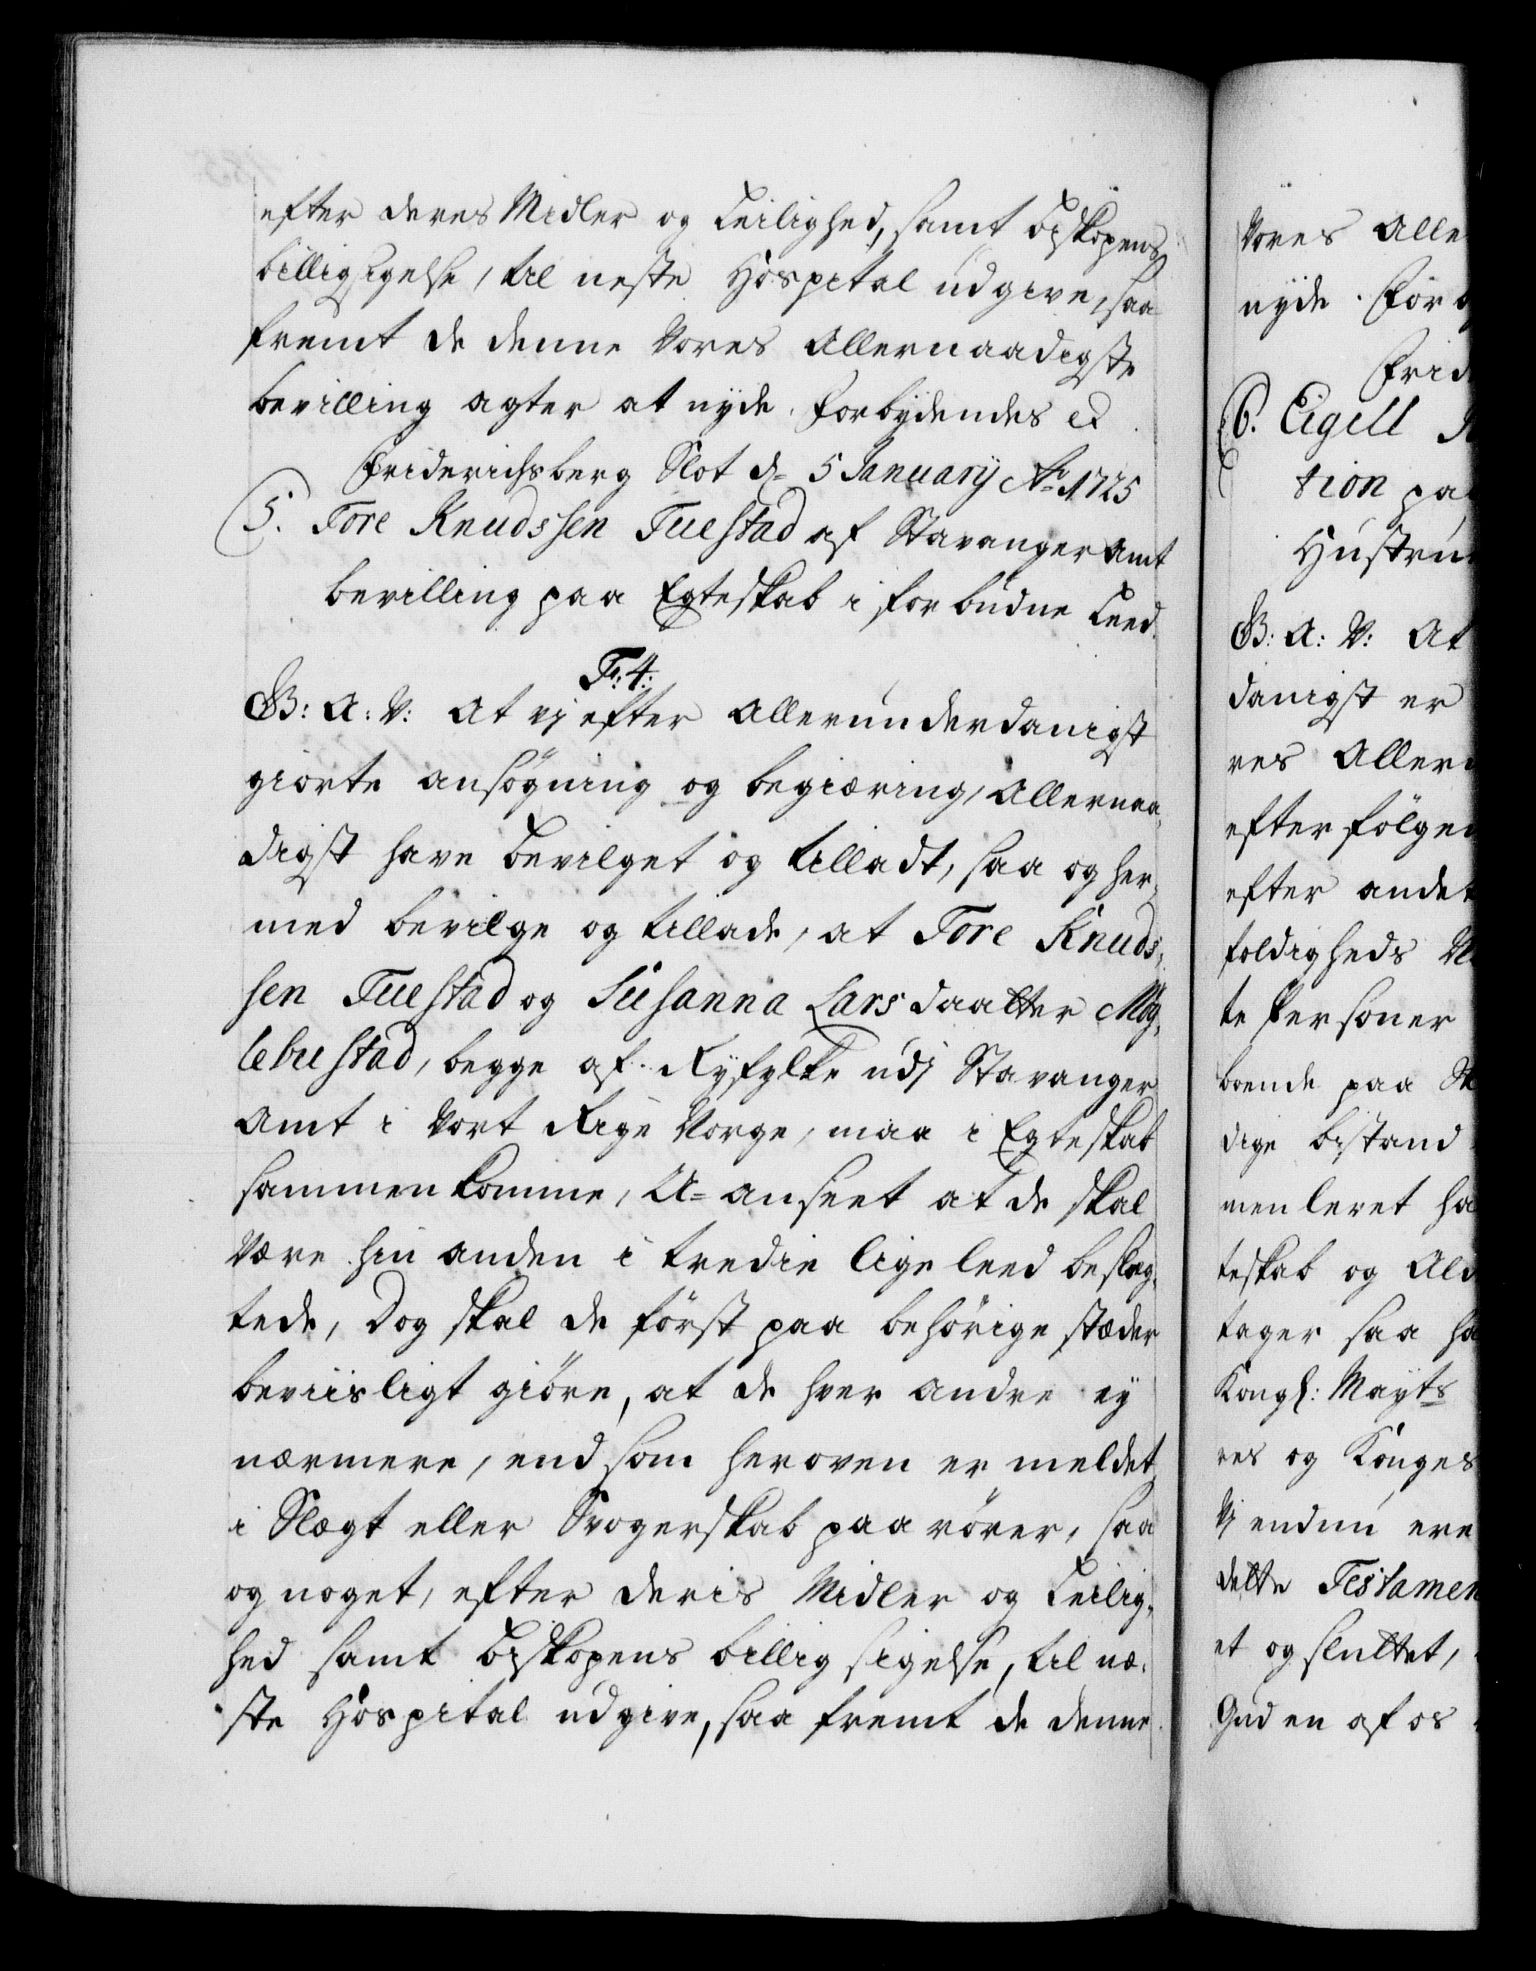 efter deres Midler og Leilighed, samt Biskopens
billigsigelse, til neste Hospital udgive, saa
fremt de denne Vores Allernaadigste
bevilling agter at nyde. Forbydendes et
Friderichsberg Slot d= 5 January Ao 1725
5. Tore Knudssen Tuestad af Stavanger Amt
bevilling paa Egteskab i forbudne Leed.
F: 4:
G: A: V: At vj efter Allerunderdanigst
giorte ansøgning og begiæring, Allernaa,
digst have bevilget og tilladt, saa og her,
med bevilge og tillade, at Tore Knuds,
sen Tuestad og Susanna Larsdaatter Mög,
lebustad, begge af Ryfylke udj Stavanger
Amt i Vort Rige Norge, maa i Egteskab
sammenkomme, U=anseet at de skal
være hin anden i tredie lige leed beslæg,
tede, Dog skal de først paa behørige stæder
beviisligt giøre, at de hver andre ey
nærmere, end som heroven er meldet
i Slægt eller Svogerskab paarører, saa
og noget, efter deris Midler og Leilig,
hed samt Biskopens billigsigelse, til næ,
ste Hospital udgive, saa fremt de denne
Vores Alle
nyde. Forb
Frid
6. Eigill
tion paa
Hustru
G: A: V: At
danigst er
res Aller
efterfølgen
efter andet
foldigheds
te Personer
boende paa
dige bistand
men levet ha
teskab og Ald
tager saa ha
Kongl: Mayts
res og Konges
Vj endnu ere
dette Testamen
et og sluttet,
Gud en af os